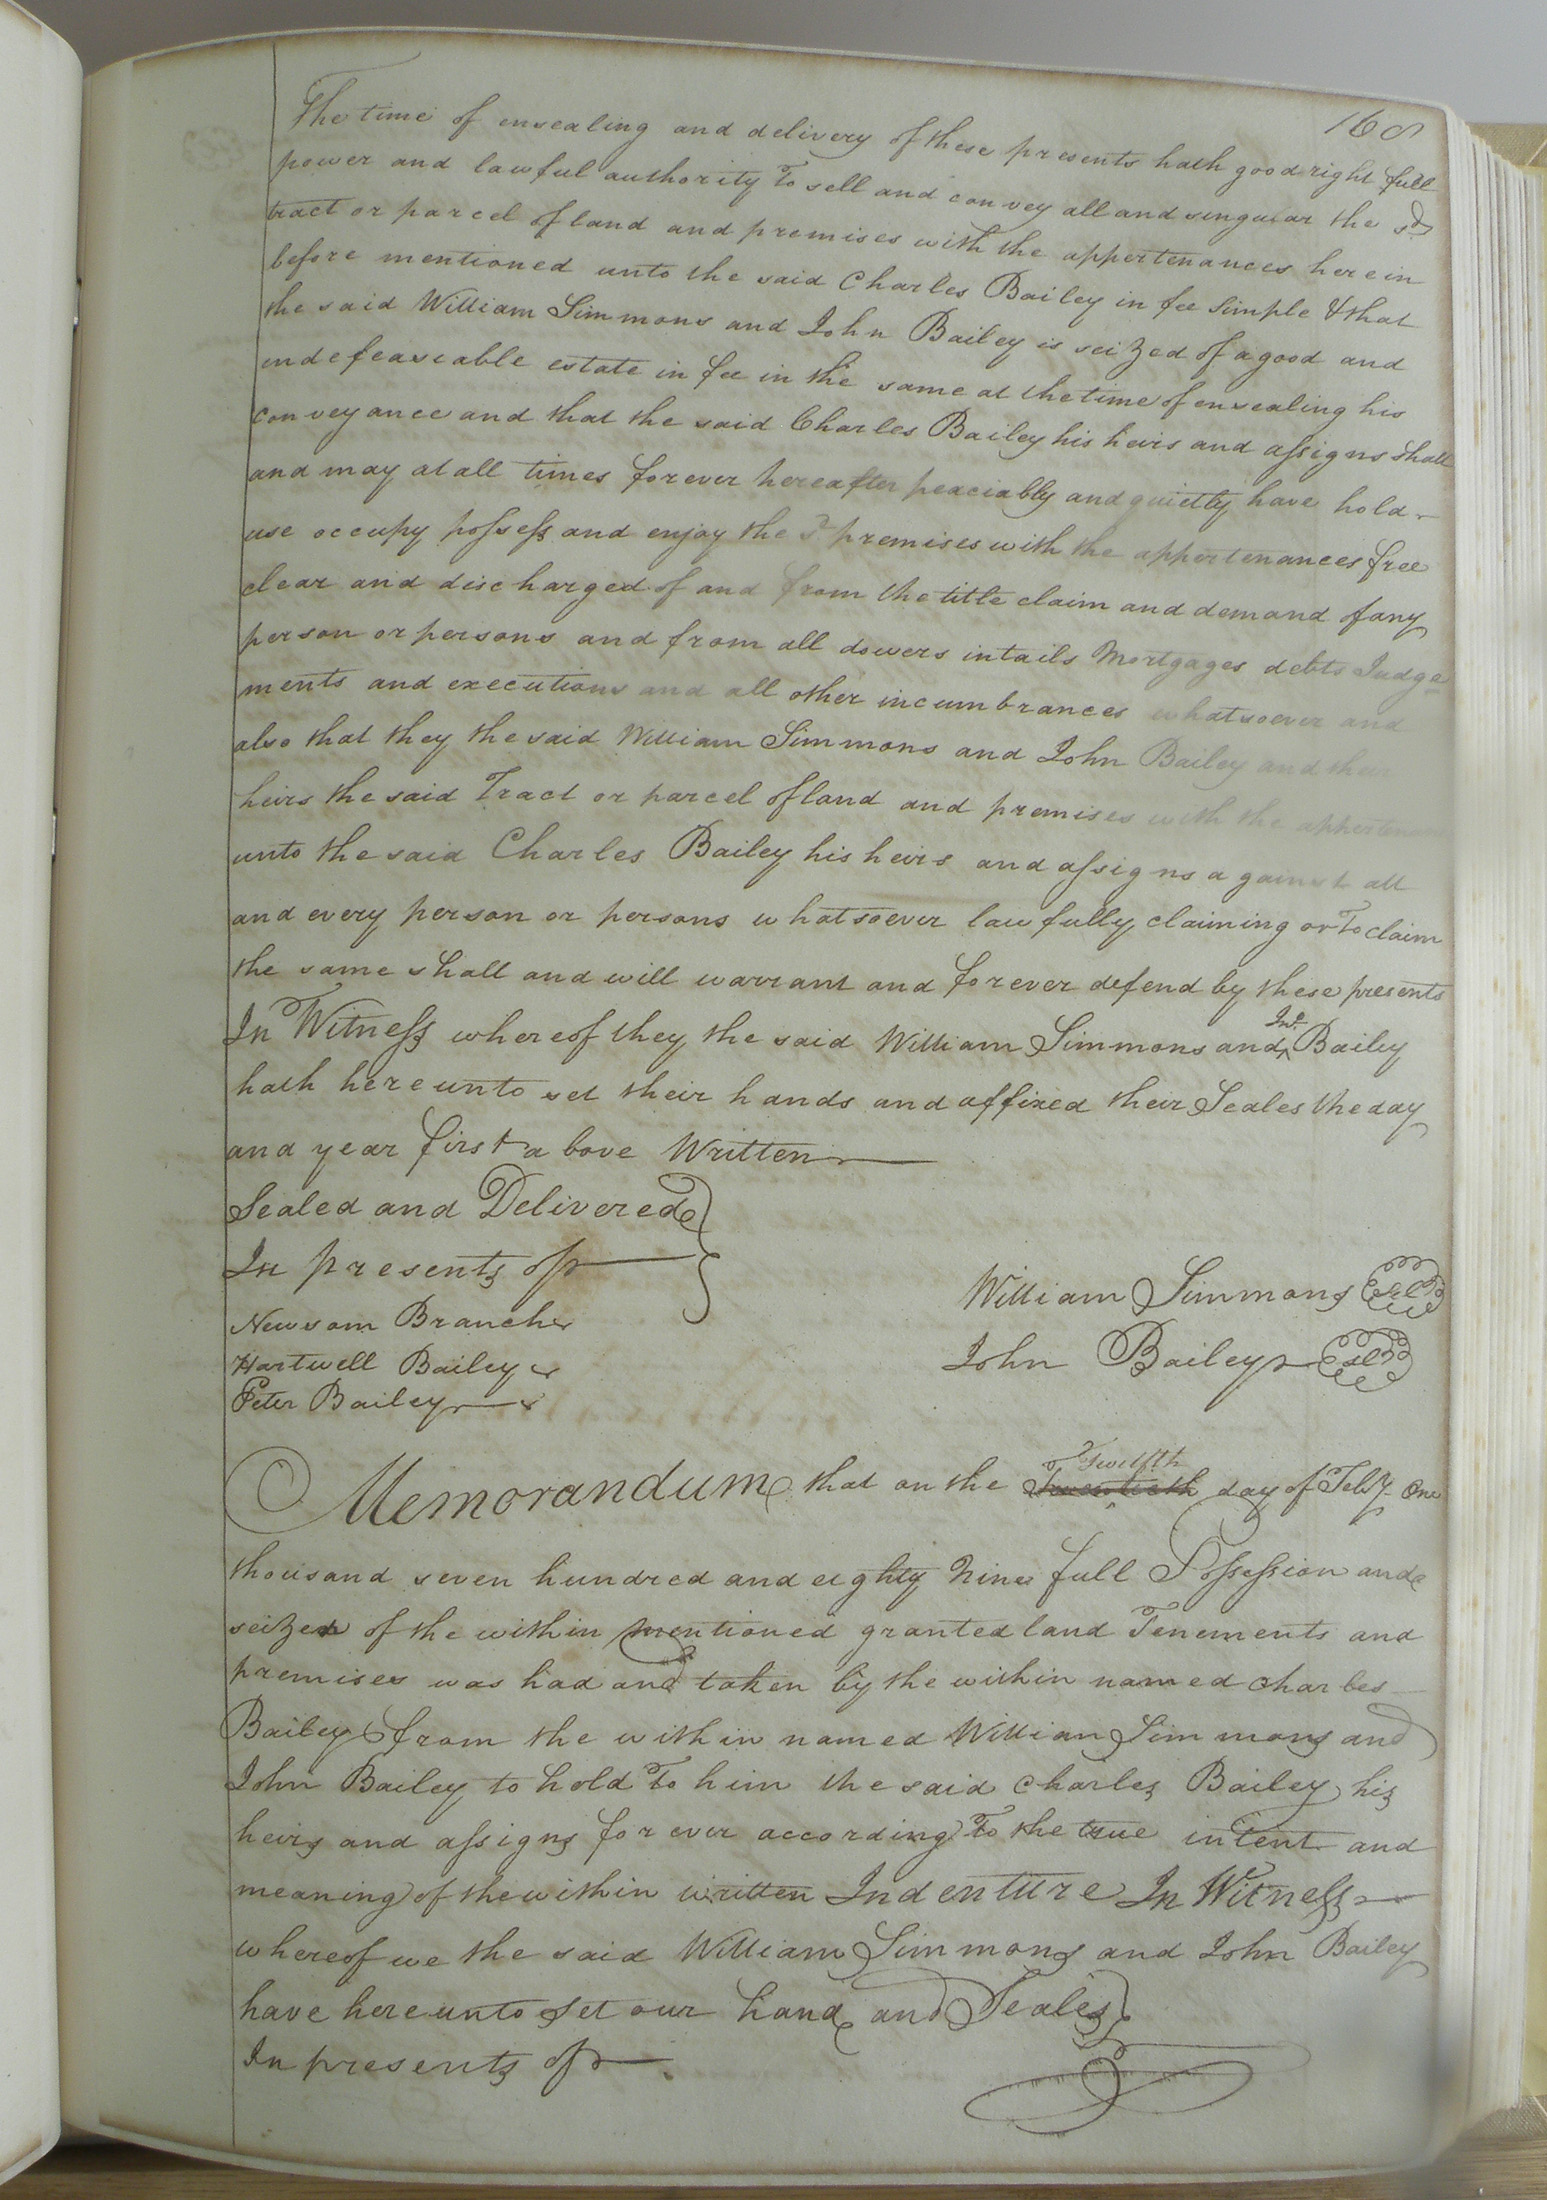 168
The time of ensealing and delivery of these presents hath good right full
power and lawful authority To sell and convey all and singular the sd
tract or parcel of land and premises with the appertenances herein
before mentioned unto the said Charles Bailey in fee Simple & that
the said William Simmons and John Bailey is seized of a good and
indefeaseable estate in fee in the same at the time of ensealing his
conveyance and that the said Charles Bailey his heirs and assigns shall
and may at all times forever hereafter peaciably and quietly have hold
use occupy possess and enjoy the sd premises with the appertenances free
clear and discharged of and from the title claim and demand of any
person or persons and from all dowers intails Mortgages debts Judge
ments and executions and all other incumbrances whatsoever and
also that they the said William Simmons and John Bailey and their
heirs the said Tract or parcel of land and premises with the apperten
unto the said Charles Bailey his heirs and assigns against all
and every person or persons whatsoever lawfully claiming or To claim
the same shall and will warrant and forever defend by these presents
In Witness whereof they the said William Simmons and Jno. Bailey
hath hereunto set their hands and affixed their Seales the day
and year first above Written
Sealed and Delivered
In presents of
William Simmons
Newsom Branch
John Bailey
Hartwell Bailey
Peter Bailey
Memorandum that on the Twelfth day of Feby. One
thousand seven hundred and eighty Nine full Possession and
seizen of the within mentioned granted land Tenements and
premises was had and taken by the within named Charles
Bailey from the within named William Simmons and
John Bailey to hold To him the said Charles Bailey his
heirs and assigns for ever according To the true intent and
meaning of the within written Indenture In Witness
whereof we the said William Simmons and John Bailey
have hereunto Set our hand and Seales
In presents of